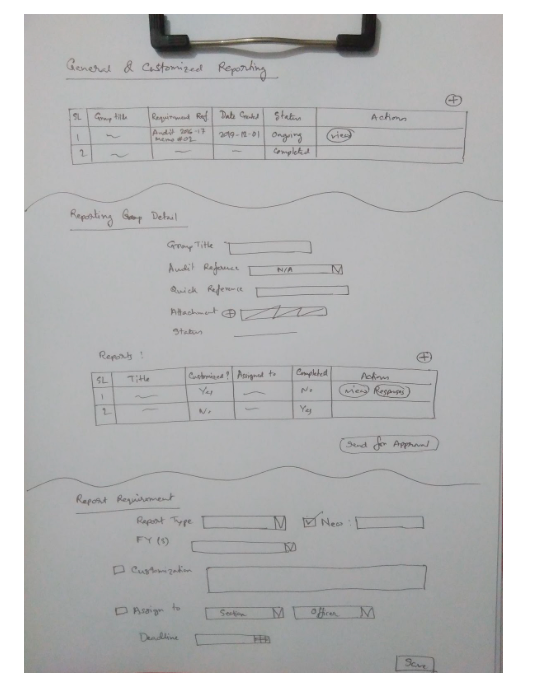 General & Customized Reporting
SL Group title Requirement Ref Date Created Status Actions
1 Audit 2016-17 memo #02 2019-12-01 Ongoing view
2 Completed
Reporting Group Detail
Group Title
Audit Reference N/A
Quick Reference
Attachment
Status
Reports :
SL Title Customized? Assigned to Completed Actions
1 Yes No view Response
2 No Yes
Send for Approval
Report Requirement
Report Type New :
FY (s)
Customization
Assign to Section Officer
Deadline
Save